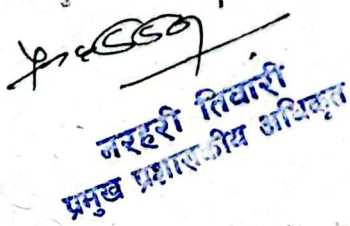 नरहरी तिवारी
प्रमुख प्रशासकीय अधिकृत